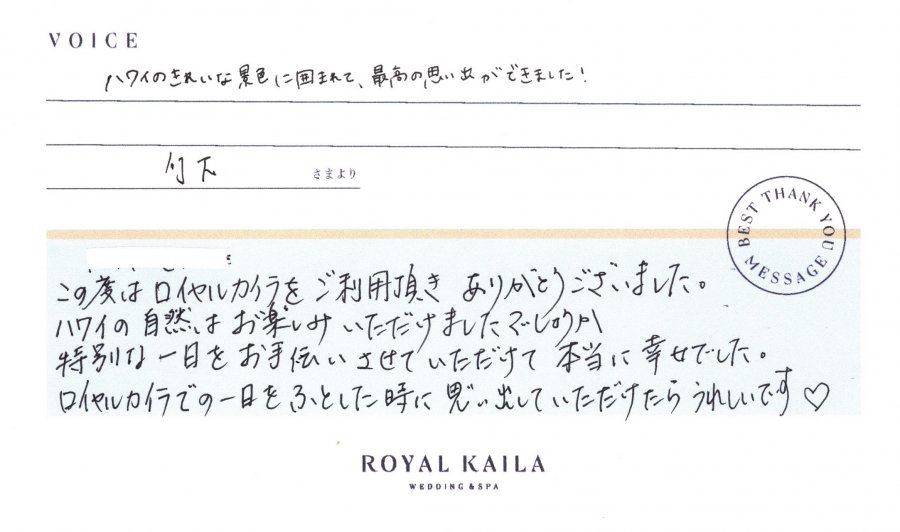 VOICE
ハワイのきれいな景色に囲まれて、最高の思い出ができました！
竹下 さまより
BEST THANK YOU MESSAGE
この度はロイヤルカイラをご利用頂き ありがとうございました。
ハワイの自然はお楽しみいただけましたでしょうか
特別な一日をお手伝いさせていただけて 本当に幸せでした。
ロイヤルカイラでの一日をふとした時に思い出していただけたらうれしいです♡
ROYAL KAILA
WEDDING & SPA